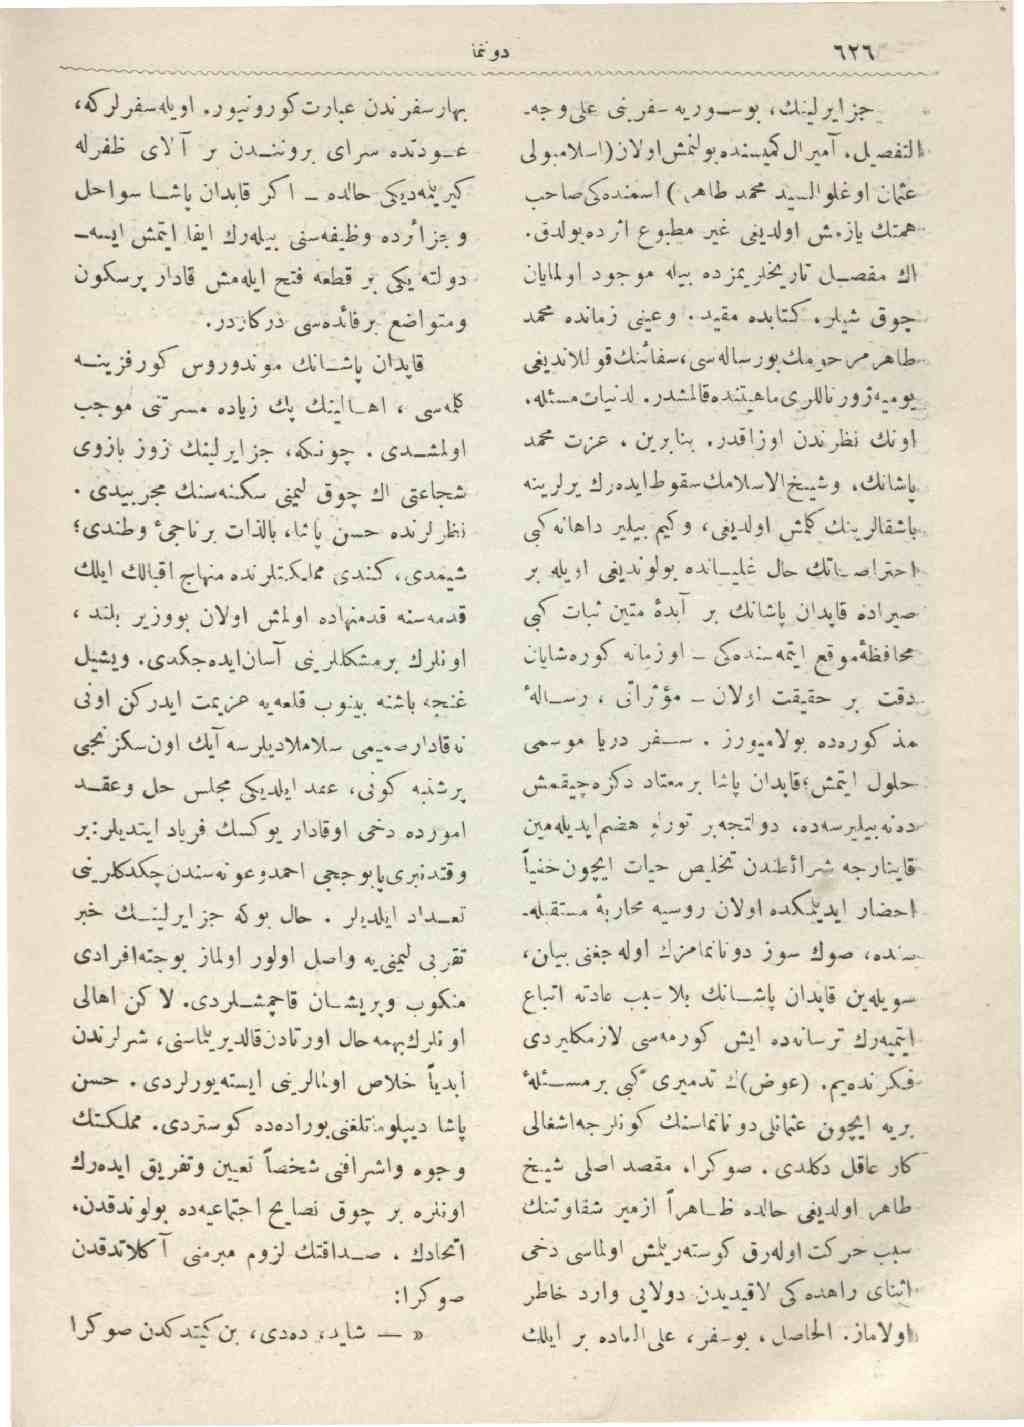 ٦٢٦
دونما
جزایرلینك، بو سوریه سفرینی علی وجه
التفصیل، آمیرال كمیسنده بولنمش اولان (اسلامبولی
عثمان اوغلو السید محمد طاهر) اسمنده‌كی صاحب
همتك یازمش اولدیغی غیر مطبوع اثرده بولدق.
اك مفصل تاریخلریمزده بیله موجود اولمایان
چوق شیلر، كتابده مقید. وعینی زمانده محمد
طاهر مرحومك بو رساله‌سی، سفائنك قوللاندیغی
یومیه ژورناللری ماهیتنده قالمشدر. لدنیات مسئله،
اونك نظرندن اوزاقدر. بنابرین، عزت محمد
پاشانك، وشیخ الاسلامك سقوط ایده‌رك یرلرینه
باشقالرینك كلمش اولدیغی، وكیم بیلیر داها نه كبی
احتراصاتك حال غلیانده بولوندیغی اویله بر
صیراده قاپدان پاشانك بر آبدهٔ متین ثبات كبی
محافظهٔ موقع ایتمه‌سنده‌كی ـ او زمانه كوره شایان
دقت بر حقیقت اولان ـ مؤثراتی، رسالهٔ
مذكوره‌ده بولامیورز. سفر دریا موسمی
حلول ایتمش؛ قاپدان پاشا بر معتاد دكزه چیقمش
ده‌نه‌بیلیرسه‌ده، دولتجه بر تورلو هضم ایدیله‌مین
قاینارجه شرائطندن تخلیص حیات ایچون خفیاً
احضار ایدیلمكده اولان روسیه محاربهٔ مستقبله‌
سنده، صوك سوز دونانمامزك اوله‌جغنی بیان،
سویله‌ین قاپدان پاشانك بلا سبب عادته اتباع
ایتمیه‌رك ترسانه‌ده ایش كورمه‌سی لازمكلیردی
فكرنده‌یم. (عوض)ك تدمیری كبی بر مسئلهٔ
بریه ایچون عثمانلی دونانماسنك كونلرجه اشغالی
كار عاقل دكلدی. صوكرا، مقصد اصلی شیخ
طاهر اولدیغی حالده ظاهراً ازمیر شقاوتنك
سبب حركت اوله‌رق كوسته‌ریلمش اولماسی دخی
اثنای راهده‌كی لاقیدیدن دولایی وارد خاطر
اولاماز. الحاصل، بو سفر، علی العاده بر ایلك
بهار سفرندن عبارت كورونیور. اویله سفرلركه،
عودتده سرای برونندن بر آلای ظفرله
كیریلمه‌دیكی حالده ـ اكر قاپدان پاشا سواحل
وجزائرده وظیفه‌سنی بیله‌رك ایفا ایتمش ایسه ـ
دولته یكی بر قطعه فتح ایله‌مش قادار پرسكون
ومتواضع بر فائده‌سی دركاردر.
قاپدان پاشانك موندوروس كورفزینه
كلمه‌سی، اهالینك پك زیاده مسرتنی موجب
اولمشدی. چونكه، جزایرلینك زور بازوی
شجاعتی اك چوق لیمنی سكنه‌سنك مجربیدی.
نظرلرنده حسن پاشا، بالذات بر ناجیٔ وطندی؛
شیمدی، كندی مملكتلرنده منهاج اقبالك ایلك
قدمه‌سنه قدمنهاده اولمش اولان بو وزیر بلند،
اونلرك بر مشكللرینی آسان ایده‌جكدی. ویشیل
غنجه باشنه بینوب قلعه‌یه عزیمت ایدركن اونی
نه قادار صمیمی سلاملادیلرسه آیك اون سكزنجی
پرشنبه كونی، عقد ایلدیكی مجلس حل وعقد
اموره‌ده دخی اوقادار یوكسك فریاد ایتدیلر: بر
وقتدنبری پابوججی احمد وعونه‌سندن چكدكلرینی
تعداد ایلدیلر. حال بوكه جزایرلینك خبر
تقربی لیمنی‌یه واصل اولور اولماز بو جته افرادی
منكوب وپریشان قاچمشلردی. لاكن اهالی
اونلرك بهمه حال اورتادن قالدیریلماسنی، شرلرندن
ابدیاً خلاص اولمالرینی ایسته‌یورلردی. حسن
پاشا دیپلوماتلغنی بوراده‌ده كوستردی. مملكتك
وجوه واشرافنی شخصاً تعیین وتفریق ایده‌رك
اونلره بر چوق نصایح اجتماعیه‌ده بولوندقدن،
اتحادك، صداقتك لزوم مبرمنی آكلاتدقدن
صوكرا:
» — شاید، ده‌دی، بن كیتدكدن صوكرا